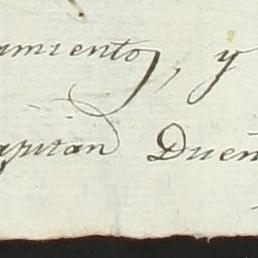 amiento, y
apitan Dueñ